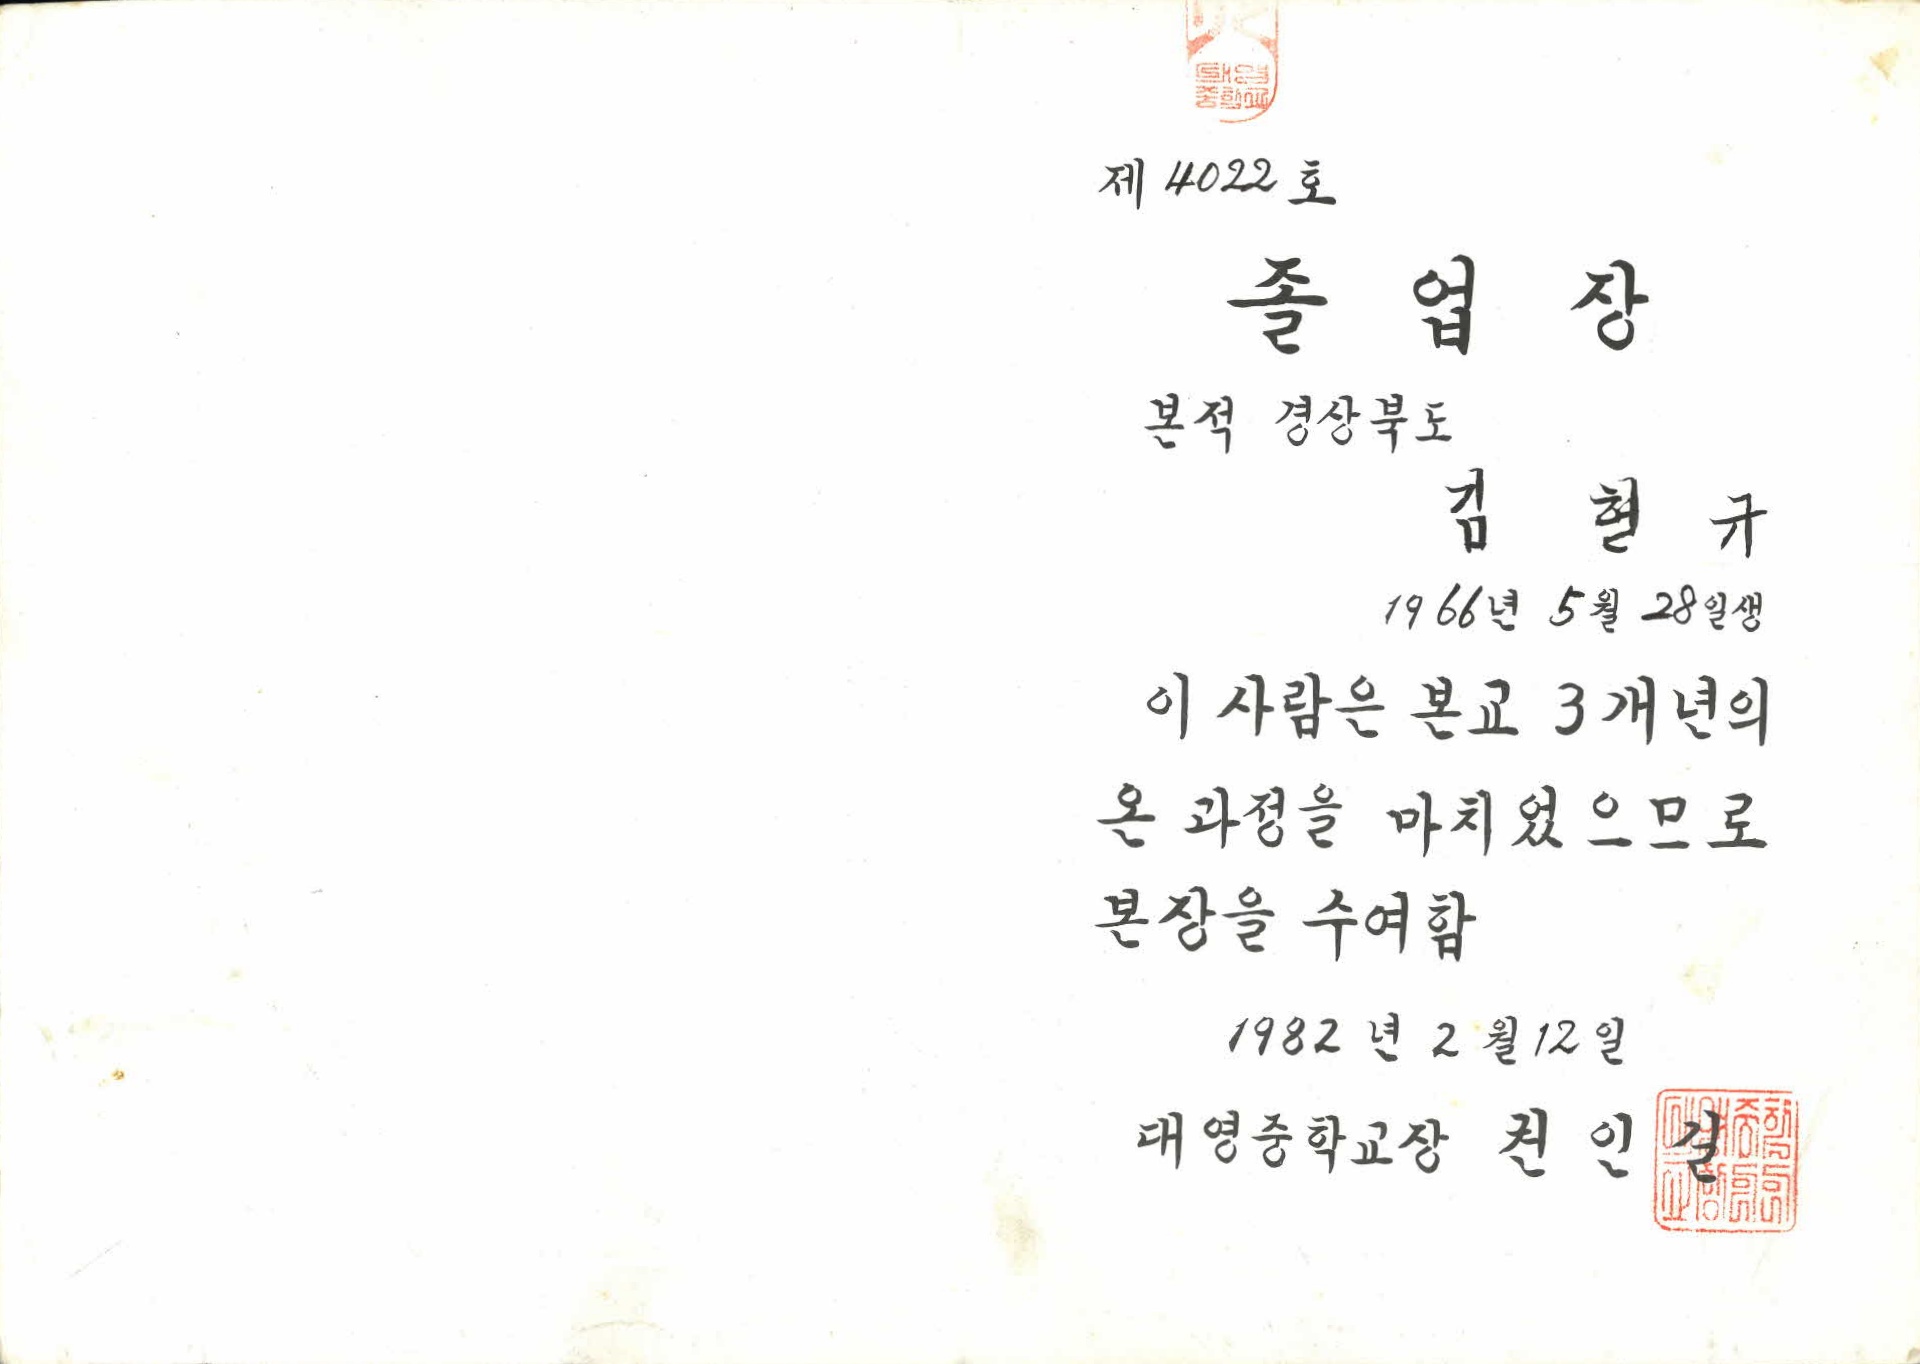 대영
중학교
제 4022 호
졸 업 장
본적 경상북도
김 현 규
1966년 5월 28일생
이 사람은 본교 3개년의
온 과정을 마치었으므로
본장을 수여함
1982 년 2 월 12 일
대영중학교장 권 인 길